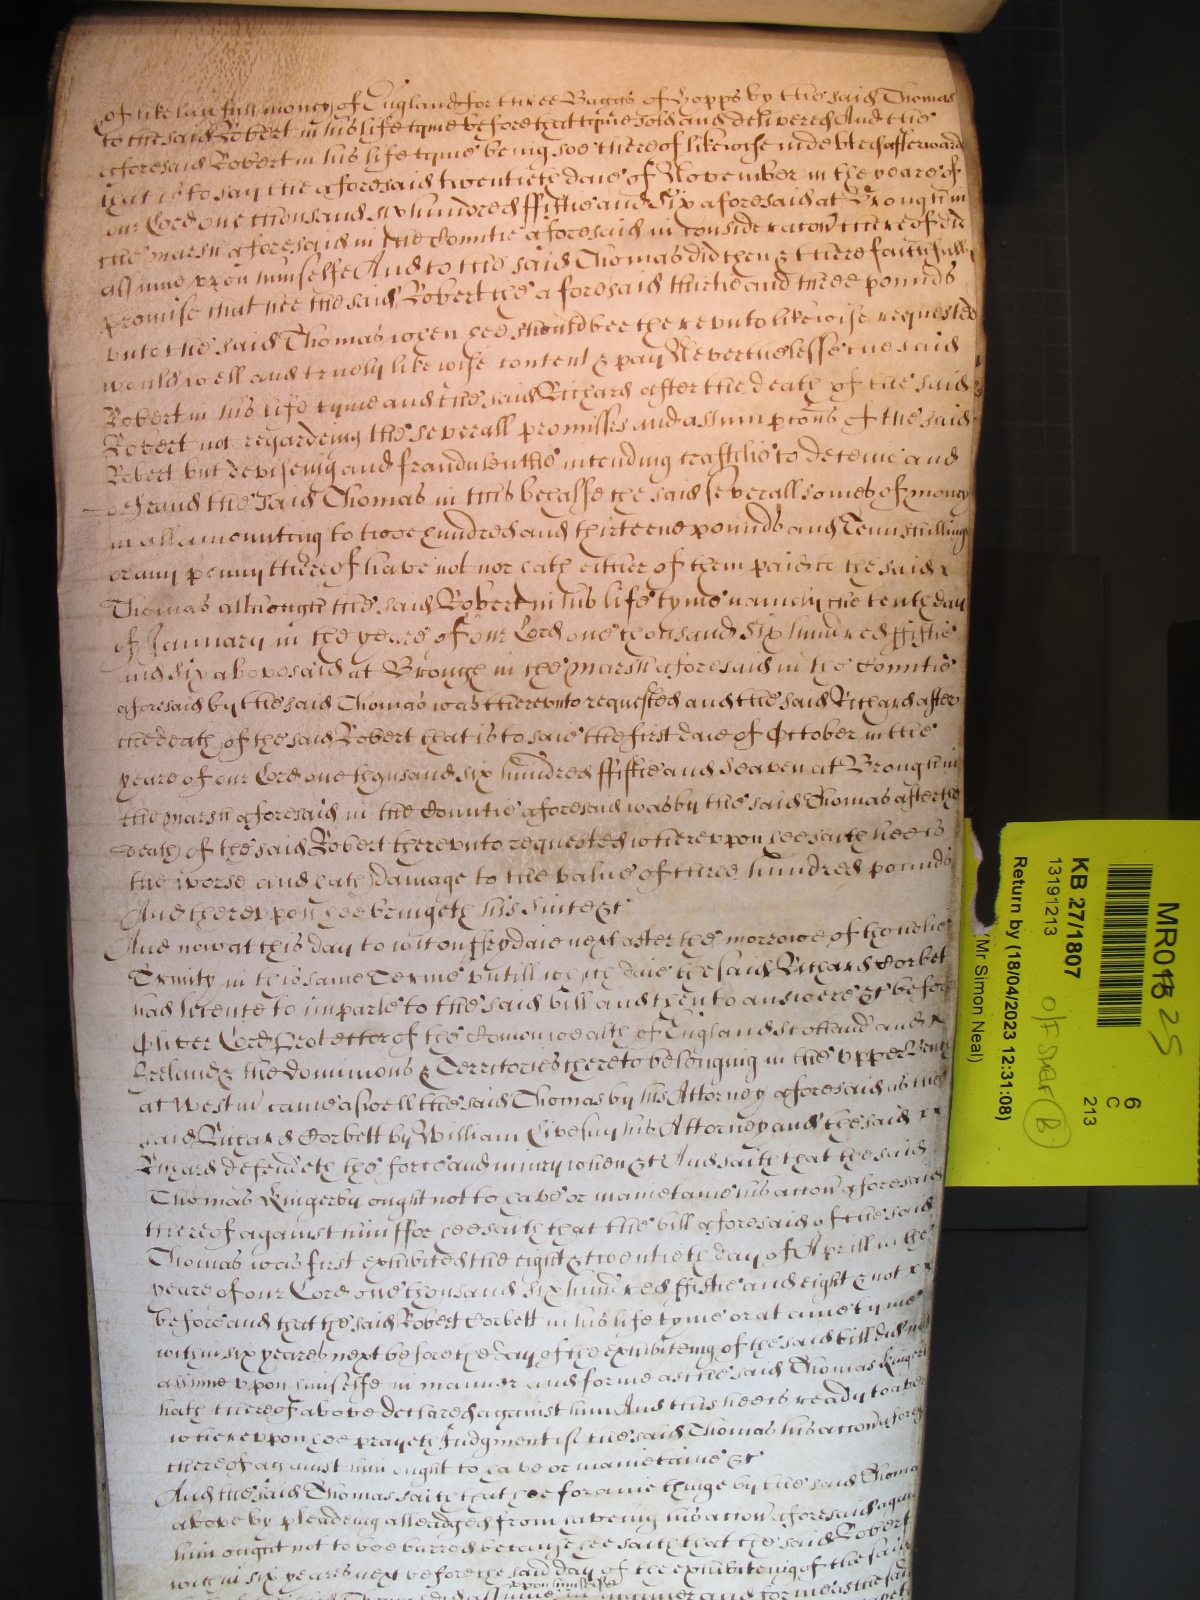 of like lawfull money of England for three Baggs of Hopps by the said Thomas
to the said Robert in his life tyme before that tyme sold and delivered And the
aforesaid Robert in his life tyme being soe thereof likewise indebted afterward
that is to say the aforesaid twentieth daie of November in the yeare of
our Lord one thousand six hundred ffiftie and Six aforesaid at Brough in
the marsh aforesaid in the Countie aforesaid in consideracon thereof did
assume vpon himselfe And to the said Thomas did then & there faithfully
promise that hee the said Robert the aforesaid thirtie and three pounds
vnto the said Thomas when hee should bee therevnto likewise requested
would well and truely likewise content & pay Neverthelesse the said
Robert in his life tyme and the said Richard after the death of the said
Robert not regardeing the severall promisses and assumpcons of the said
Robert but deviseing and fraudulentlie intending craftilie to deceive and
defraud the said Thomas in this behalfe the said severall somes of money
in all amounting to twoe hundred and thirteene pounds and Tenn shillings
or any penny thereof have not nor hath either of them paid to the said x
Thomas although the said Robert in his life tyme namely the tenth day
of January in the yeare of our Lord one thousand six hundred ffiftie
and six abovesaid at Brough in the marsh aforesaid in the Countie
aforesaid by the said Thomas was therevnto requested and the said Richard after
the death of the said Robert that is to saie the first daie of October in the
yeare of our Lord one thousand six hundred ffiftie and seaven at Brough in
the marsh aforesaid in the Countie aforesaid was by the said Thomas after the
death of the said Robert therevnto requested wherevpon hee saith hee is
the worse and hath damage to the value of three hundred pounds
And therevpon hee bringeth his suite &c
And now at this day to wit on ffrydaie next after the morrowe of the holie
Trinity in this same Terme vntill which daie the said Richard Corbet
had licence to imparle to the said bill and then to answere &c before
Oliver Lord Protector of the Comonwealth of England Scotland and x
Ireland & the dominions & Territories thereto belonging in the vpper Bench
at Westm came aswell the said Thomas by his Attorney aforesaid as the
said Richard Corbett by William Livesay his Attorney and the said x x
Richard defendeth the force and iniury when &c And saith that the said
Thomas Kingerby ought not to have or mainetaine his accon aforesaid
thereof against him ffor hee saith that the bill aforesaid of the said
Thomas was first exhibited the eight & twentieth day of Aprill in the
yeare of our Lord one thousand six hundred ffiftie and eight & not x x
before and that the said Robert Corbett in his life tyme or at anie tyme
within six yeares next before the day of the exhibiteing of the said bill did not
assume vpon himselfe in manner and forme as the said Thomas Kingerby
hath thereof above declared against him And this hee is ready to aver
wherevpon hee prayeth Judgment if the said Thomas his accon aforesaid
thereof against him ought to have or mainetaine &c
And the said Thomas saith that hee for anie thinge by the said Thomas
above by pleadeing alleadged from haveing his accon aforesaid against
him ought not to bee barred because hee saith that the said Robert
within six yeares next before the said day of the exhibiteing of the said
vpon himselfe
did assume in manner and forme as the said
MR018 25
6
C
213
KB 27/1807
13191213
O/F Shar (B)
Return by (18/04/2023 12:31:08)
(Mr Simon Neal)